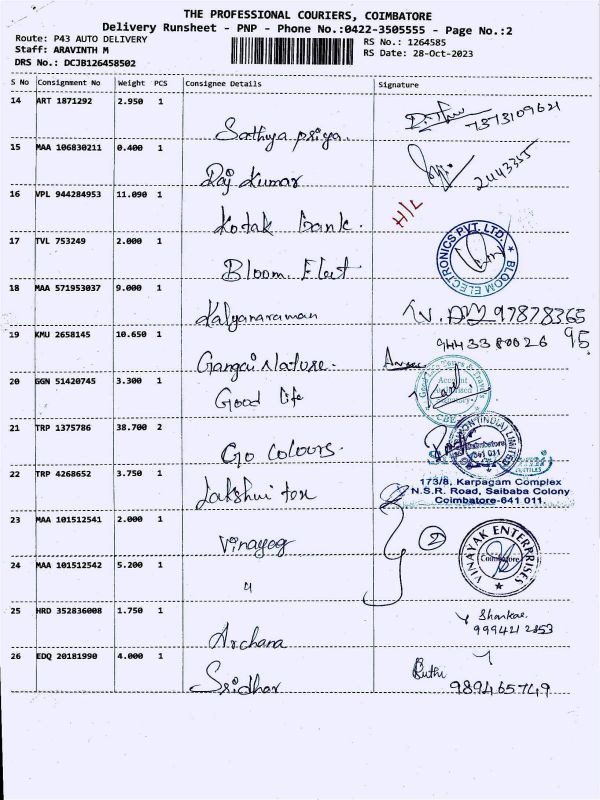 THE PROFESSIONAL COURIERS, COIMBATORE
Delivery Runsheet - PNP - Phone No.:0422-3505555 - Page No.:2
Route: P43 AUTO DELIVERY
RS No.: 1264585
Staff: ARAVINTH M
RS Date: 28-Oct-2023
DRS No.: DCJB126458502
S No Consignment No Weight PCS Consignee Details Signature
14 ART 1871292 2.950 1
Sathya priya. 7373109621
15 MAA 106830211 0.400 1
Raj Kumar 2443355
16 VPL 944284953 11.090 1
Kotak Bank. H/L
17 TVL 753249 2.000 1
Bloom. Elect
BLOOM ELECTRONICS PVT. LTD.
18 MAA 571953037 9.000 1
Kalyanaraman 97878365
95
19 KMU 2658145 10.650 1
9443380026
Gangai Nature.
20 GGN 51420745 3.300 1
Good life
CBE
21 TRP 1375786 38.700 2
Go Colours.
22 TRP 4268652 3.750 1
173/8, Karpagam Complex
N.S.R. Road, Saibaba Colony
Coimbatore-641 011.
Lakshmi tex
23 MAA 101512541 2.000 1
Vinayag 2
VINAYAK ENTERPRISES
Coimbatore
24 MAA 101512542 5.200 1
"
25 HRD 352836008 1.750 1
Shankar
9994212853
Archana
26 EDQ 20181990 4.000 1
Ruthi
Sridhar 9894465749